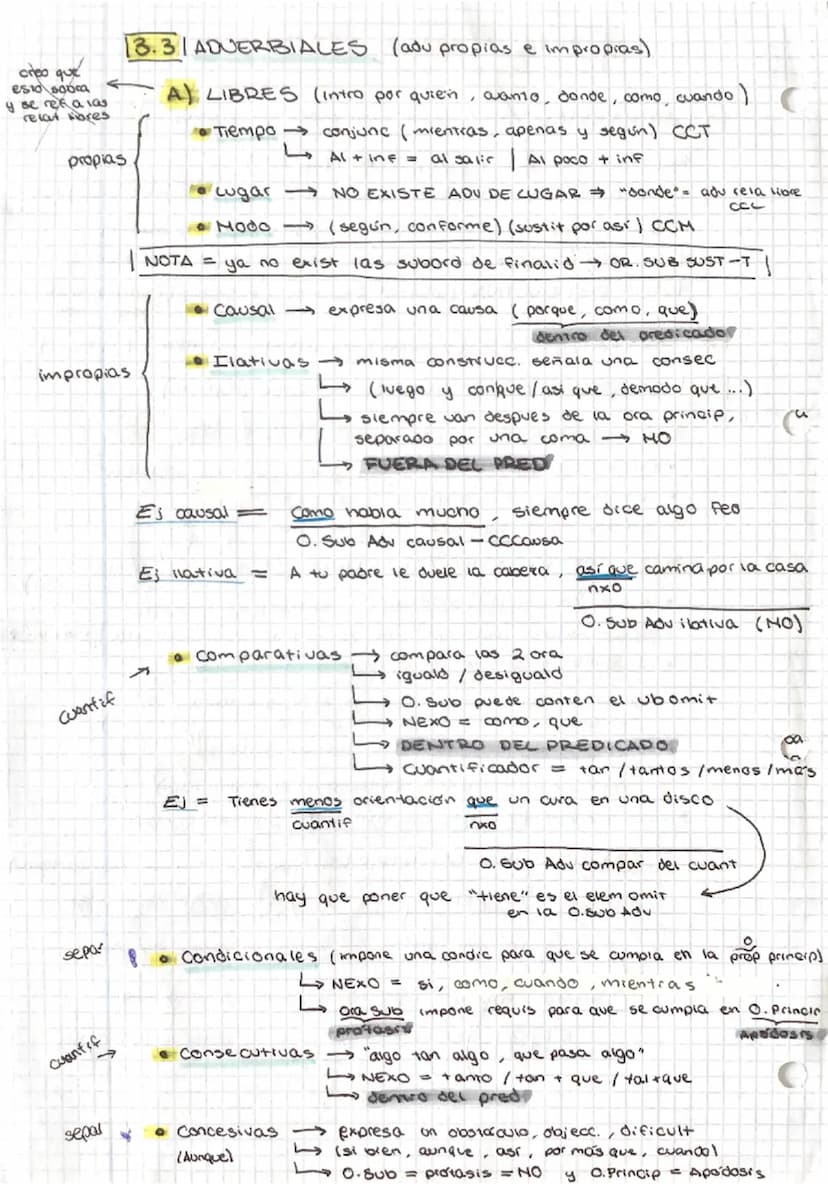 3.3 | ADVERBIALES (adv propias e impropias)
creo que
esto sobra
y se ref a las
relat libres
A) LIBRES (intro por quien, cuanto, donde, como, cuando)
propias
• Tiempo → conjunc (mientras, apenas y según) CCT
↳ Al + inf = al salir | Al poco + inf
• Lugar → NO EXISTE ADV DE LUGAR ⇒ "donde" = adv rela libre
CCL
• Modo → (según, conforme) (sustit por así) CCM
| NOTA = ya no exist las subord de finalid → OR. SUB SUST-T |
impropias
• Causal → expresa una causa (porque, como, que)
dentro del predicado
• Ilativas → misma construcc. señala una consec
↳ (luego y conque / asi que, demodo que ...)
↳ siempre van despues de la ora princip,
separado por una coma → MO
↳ FUERA DEL PRED
Ej causal = Como habla mucho, siempre dice algo feo
O. Sub Adv causal - CCCausa
Ej ilativa = A tu padre le duele la cabeza, así que camina por la casa
nxo
O. Sub Adv ilativa (MO)
cuantif
• Comparativas → compara las 2 ora
↳ iguald / desiguald
↳ O. Sub puede conten el vb omit
↳ NEXO = como, que
↳ DENTRO DEL PREDICADO
↳ Cuantificador = tan / tantos / menos / más
Ej = Tienes menos orientación que un cura en una disco
cuantif nxo
O. Sub Adv compar del cuant
hay que poner que "tiene" es el elem omit
en la O.Sub Adv
separ
• Condicionales (impone una condic para que se cumpla en la prop princip)
O
↳ NEXO = si, como, cuando, mientras
↳ Ora Sub impone requis para que se cumpla en O. Princip
protasis Apódosis
cuantif →
• Consecutivas → "algo tan algo, que pasa algo"
↳ NEXO = tanto / tan + que / tal + que
↳ dentro del pred
separ
• Concesivas → expresa un obstáculo, objecc., dificult
(Aunque) ↳ (si bien, aunque, asi, por más que, cuando)
↳ O.Sub = protasis = MO y O.Princip = Apódosis